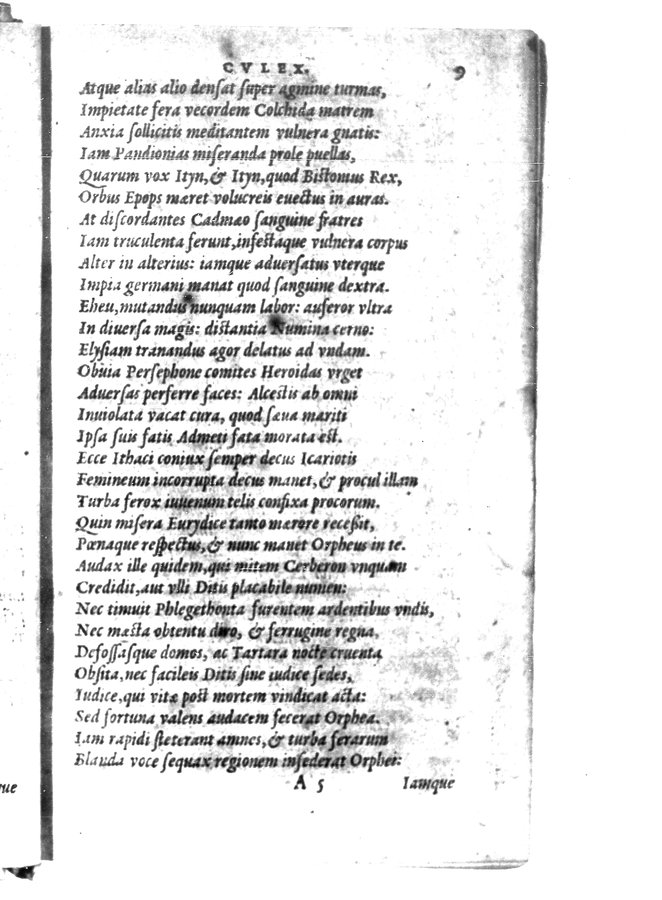 CVLEX. 9
Atque alias alio densat super agmine turmas,
Impietate fera vecordem Colchida matrem
Anxia sollicitis meditantem vulnera gnatis:
Iam Pandionias miseranda prole puellas,
Quarum vox Ityn, & Ityn, quod Bistonius Rex,
Orbus Epops mæret volucreis euectus in auras.
At discordantes Cadmæo sanguine fratres
Iam truculenta ferunt, infestaque vulnera corpus
Alter in alterius: iamque aduersatus vterque
Impia germani manat quod sanguine dextra.
Eheu, mutandus nunquam labor: auferor vltra
In diuersa magis: distantia Numina cerno:
Elysiam tranandus agor delatus ad vndam.
Obuia Persephone comites Heroidas vrget
Aduersas perferre faces: Alcestis ab omni
Inuiolata vacat cura, quod sæua mariti
Ipsa suis fatis Admeti fata morata est.
Ecce Ithaci coniux semper decus Icariotis
Femineum incorrupta decus manet, & procul illam
Turba ferox iuuenum telis confixa procorum.
Quin misera Eurydice tanto mærore recessit,
Pœnaque respectus, & nunc manet Orpheus in te.
Audax ille quidem, qui mitem Cerberon vnquam
Credidit, aut vlli Ditis placabile numen:
Nec timuit Phlegethonta furentem ardentibus vndis,
Nec mæsta obtentu diro, & ferrugine regna,
Defossasque domos, ac Tartara nocte cruenta
Obsita, nec facileis Ditis sine iudice sedes,
Iudice, qui vitæ post mortem vindicat acta:
Sed fortuna valens audacem fecerat Orphea.
Iam rapidi steterant amnes, & turba ferarum
Blanda voce sequax regionem insederat Orphei:
A 5 Iamque